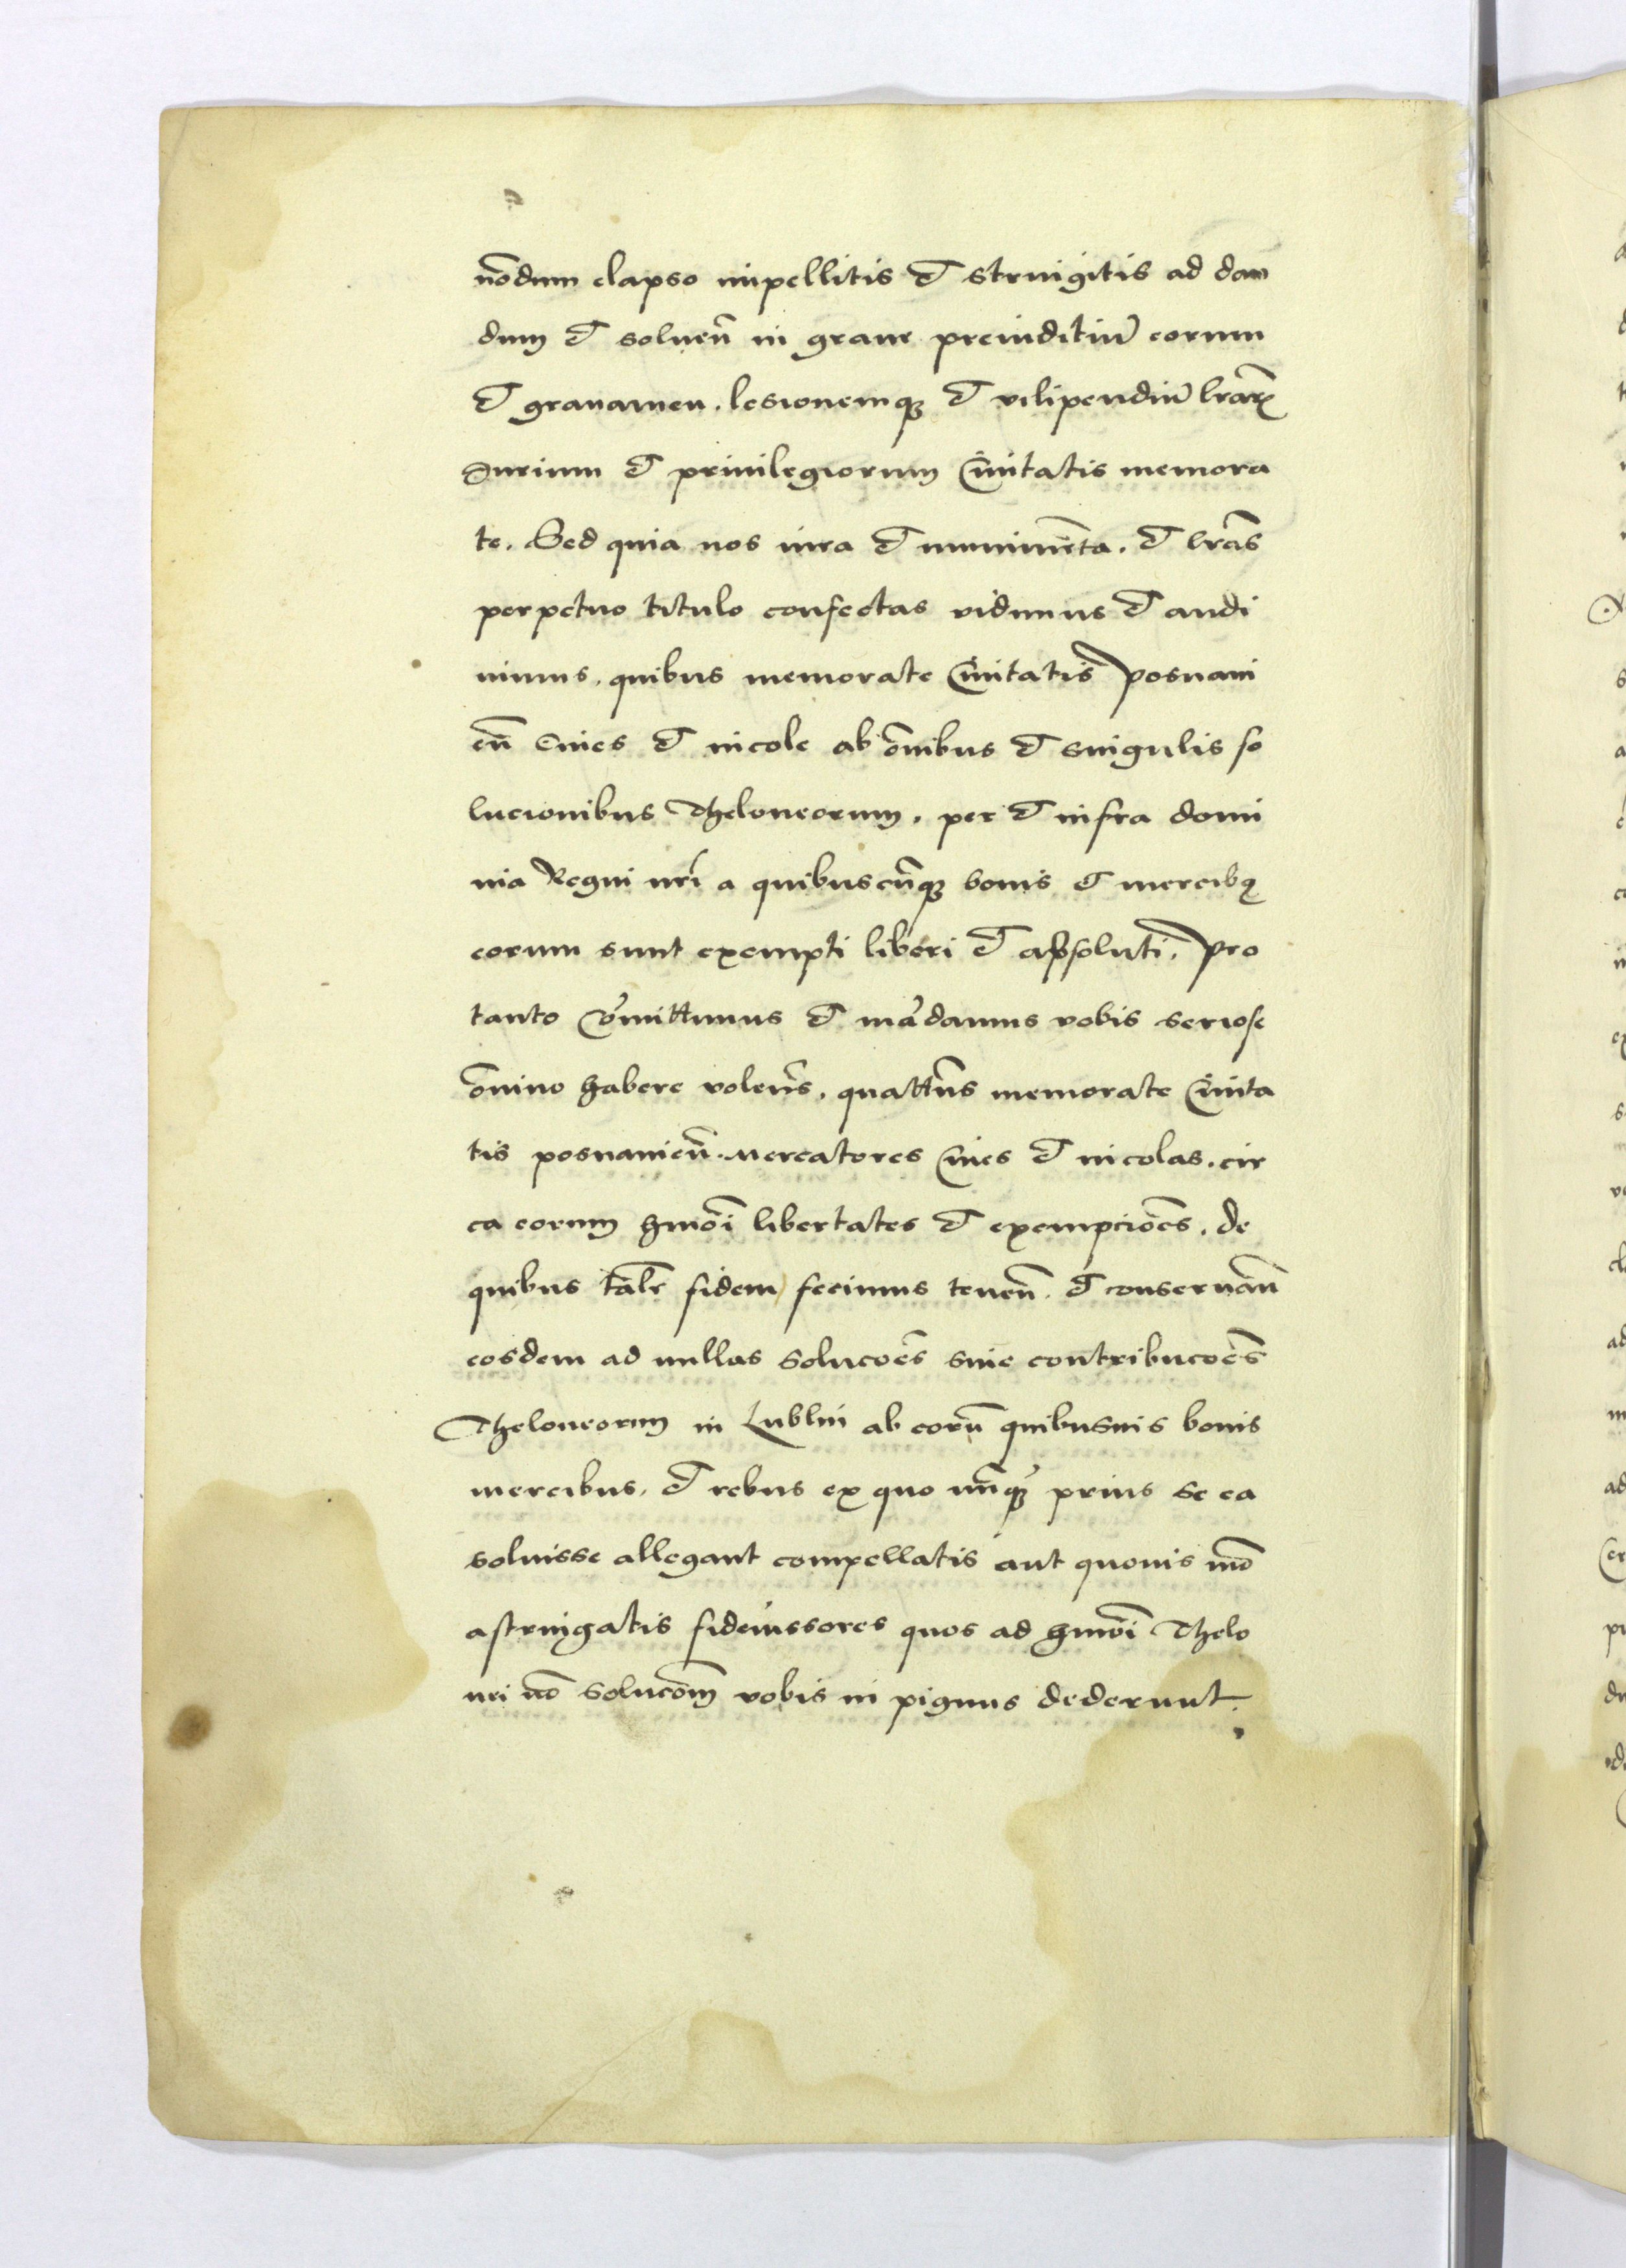 nōdum elapso impellitis et stringitis ad dan
dum et soluen̄ in graue preiuditiū eorum
et grauamen. lesionemq₃ et vilipendiū lrāꝝ
Iurium et priuilegiorum Ciuitatis memora
te. Sed quia nos iura et munimēta. et lrās
perpetuo titulo confectas vidimus et audi
uimus. quibus memorate Ciuitatis Posnani
en̄ Ciues et incole ab ōnibus et singulis so
lucionibus Theloneorum. per et infra domi
nia Regni nrī a quibuscūq₃ bonis et mercibꝫ
eorum sunt exempti liberi et absoluti. Pro
tanto cōmittimus et mādamus vobis seriose
ōnino habere volen̄s. quattn̄s memorate Ciuita
tis posnanien̄. mercatores Ciues et incolas. cir
ca eorum hmōi libertates et exempciōes. de
quibus talr̄ fidem fecimus tenen̄. et conseruān
eosdem ad nullas solucōes siue contribucōes
Theloneorum in Lublin ab eorū quibusuis bonis
mercibus. et rebus ex quo nūq₃ prius se ea
soluisse allegant compellatis aut quouis mō
astringatis fideiussores quos ad hmōi Thelo
nei nō solucōm vobis in pignus dederunt.